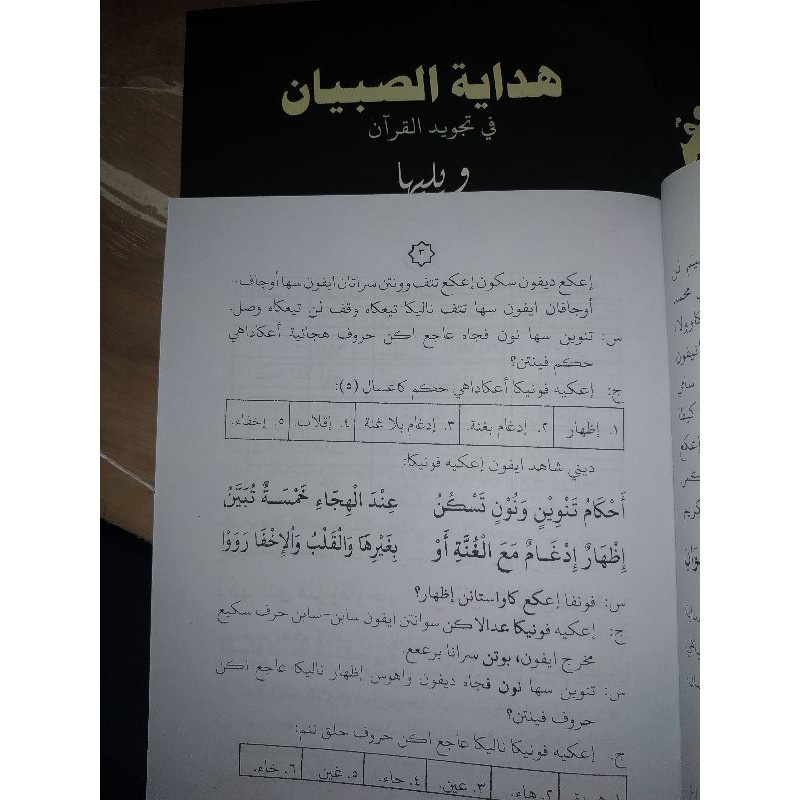 هداية الصبيان
في تجويد القرآن
ويليها
٣
إعكع ديفون سكون إعكع تتف وونتن سراتان ايفون سها أوجاف-
أوجافان ايفون سها تتف ناليكا تيعكاه وقف لن تيعكاه وصل.
س: تنوين سها نون فجاه عاجع اكن حروف هجائية أعكاداهي
حكم فينتن؟
ج: إعكيه فونيكا أعكاداهي حكم كاعسال (٥):
١. إظهار ٢. إدغام بغنة. ٣. إدغام بلا غنة ٤. إقلاب. ٥. إخفاء.
ديني شاهد ايفون إعكيه فونيكا:
أَحْكَامُ تَنْوِيْنٍ وَنُوْنٍ تَسْكُنُ عِنْدَ الْهِجَاءِ خَمْسَةٌ تُبَيَّنُ
إِظْهَارُ إِدْغَامٌ مَعَ الْغُنَّةِ أَوْ بِغَيْرِهَا وَالْقَلْبُ وَالْإِخْفَا رَوَوْا
س: فونفا إعكع كاواستانن إظهار؟
ج: إعكيه فونيكا عدالاكن سوانتن ايفون سابن-سابن حرف سكيع
مخرج ايفون، بوتن سرانا برععع.
س: تنوين سها نون فجاه ديفون واهوس إظهار ناليكا عاجع اكن
حروف فينتن؟
ج. إعكيه فونيكا ناليكا عاجع اكن حروف حلق ننم:
٢. هاء. ٣. عين. ٤. حاء. ٥. غين. ٦. خاء.